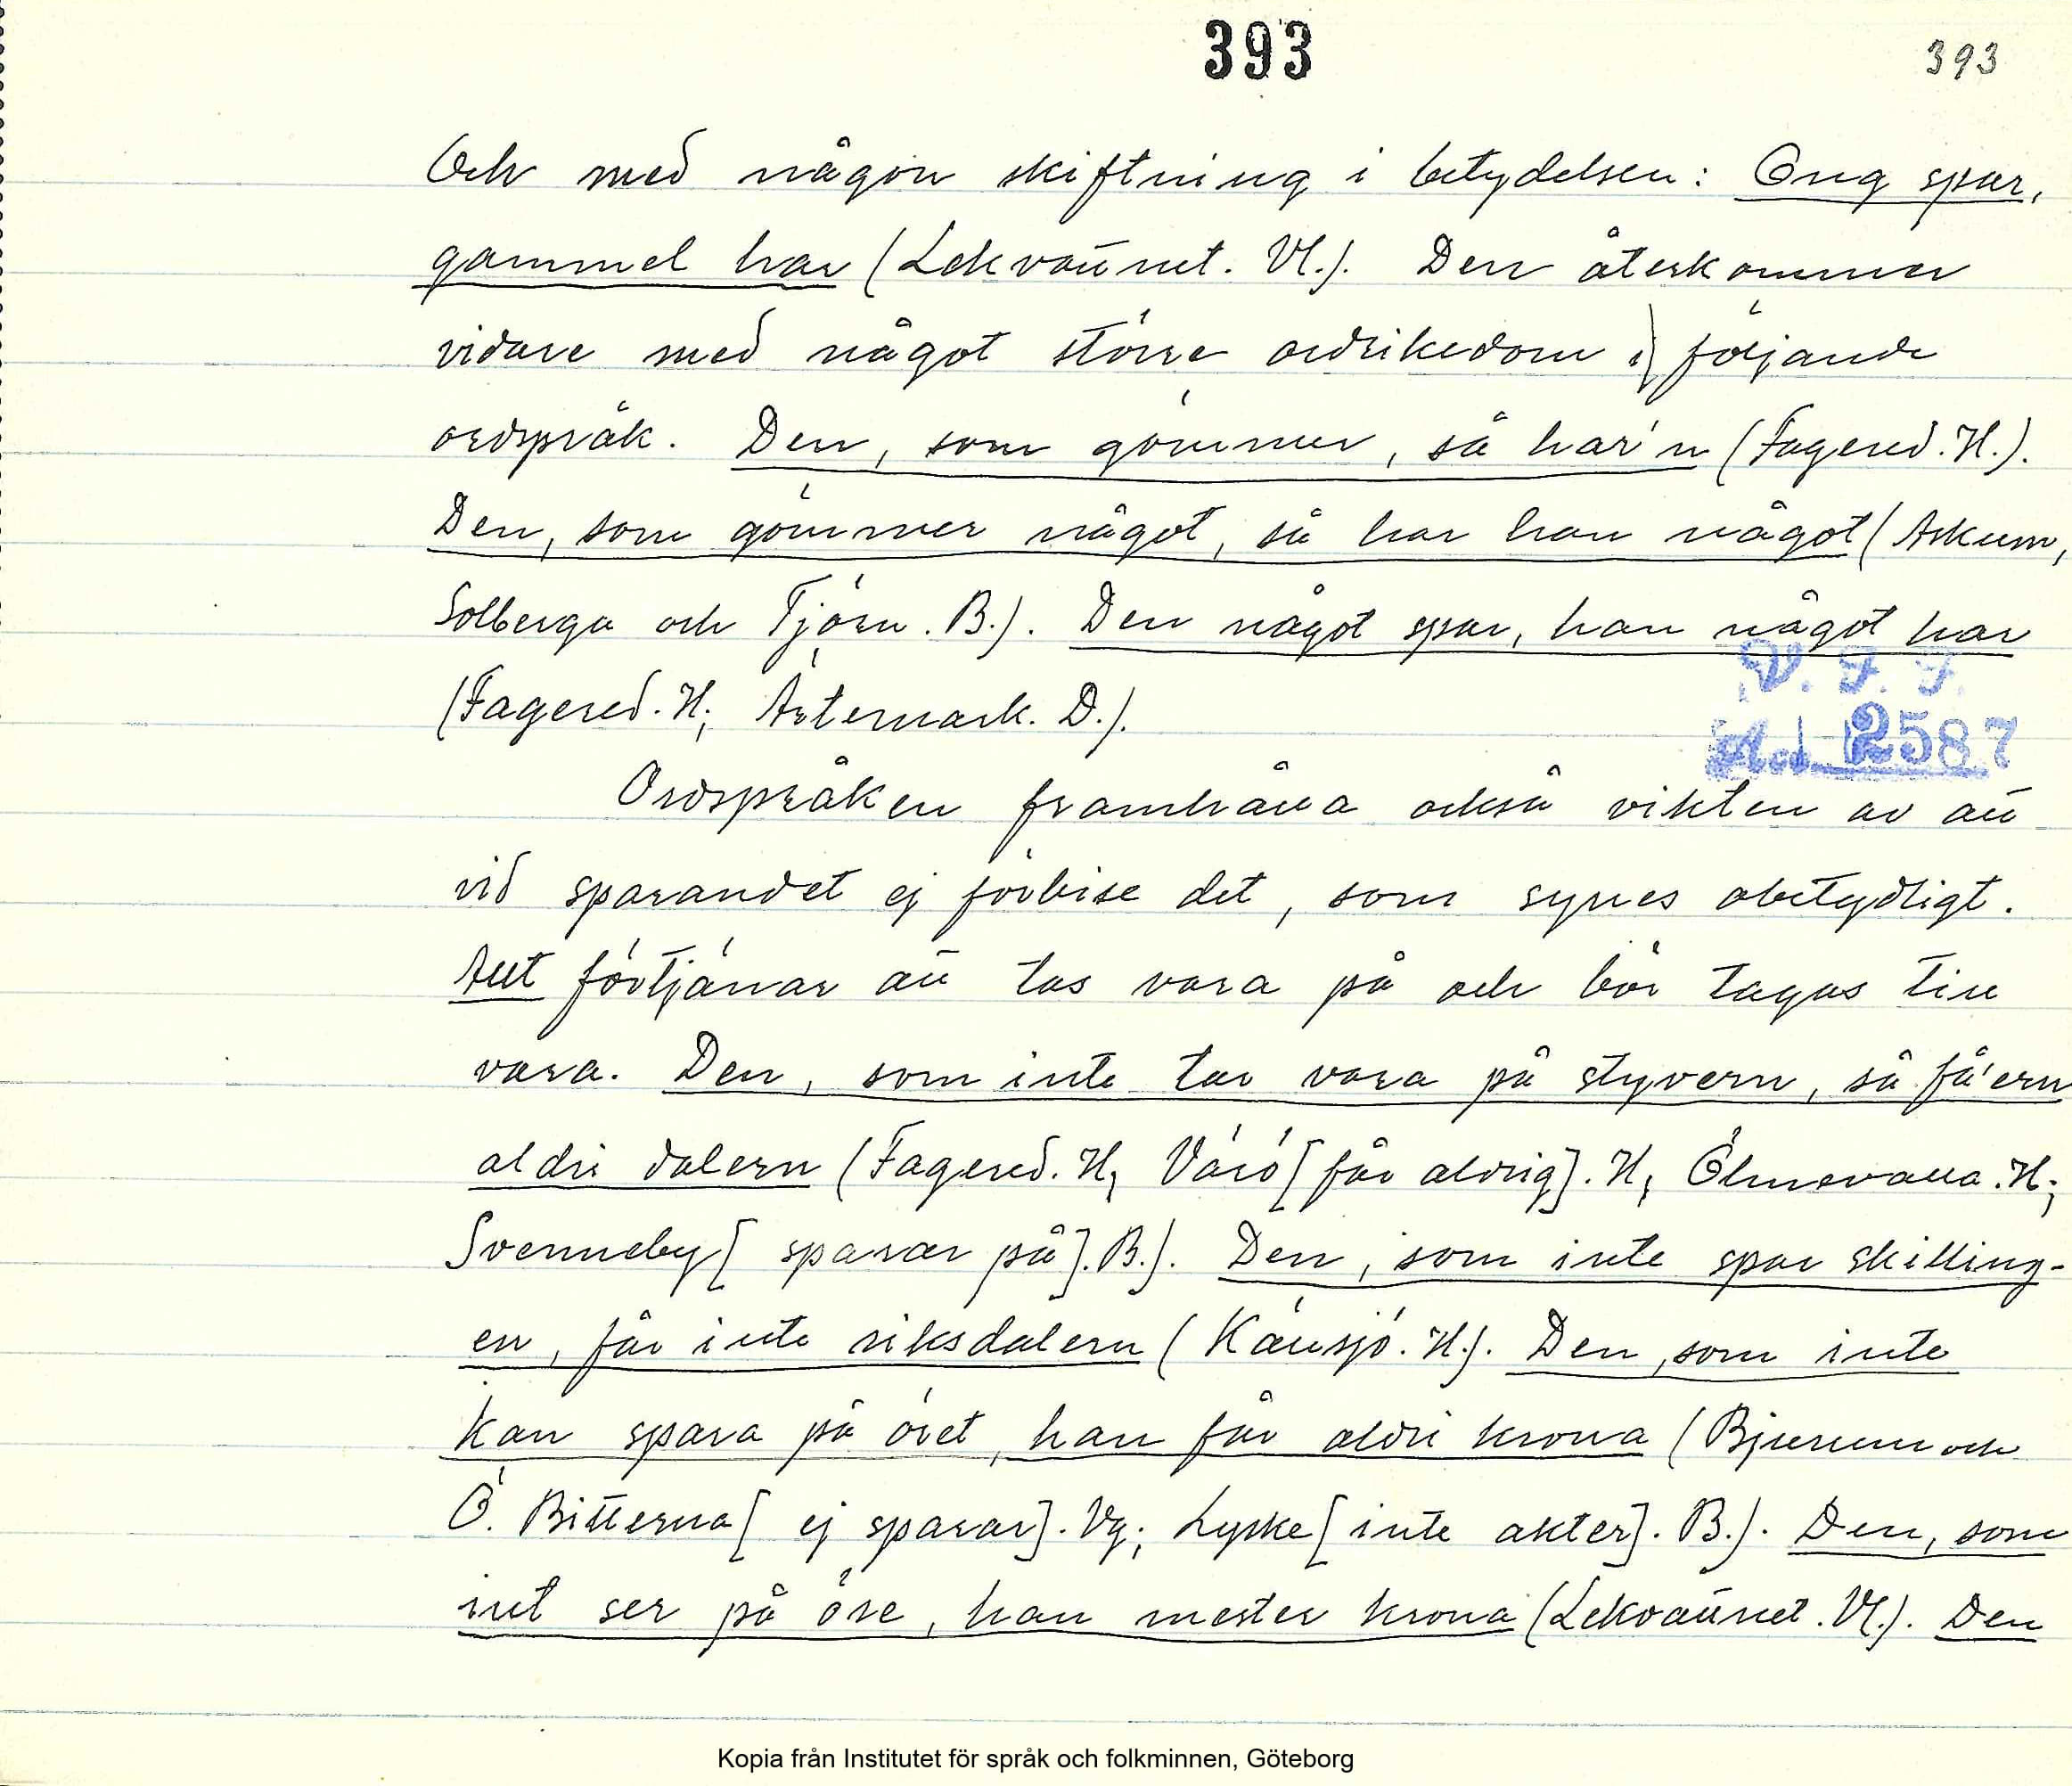 393
393
Och med någon skiftning i betydelsen: Ong spar,
gammel har (Lekvattnet. Vl.). Den återkommer
vidare med något större ordrikedom i följande
ordspråk. Den, som gömmer, så har'n (Fagered. H.).
Den, som gömmer något, så har han något (Askum,
Solberga och Tjörn. B.). Den något spar, han något har
(Fagered. H; Ärtemark. D.).
V. F. F.
Acc. 2587
Ordspråken framhålla också vikten av att
vid sparandet ej förbise det, som synes obetydligt.
Allt förtjänar att tas vara på och bör tagas till
vara. Den, som inte tar vara på styvern, så få'ern
aldri dalern (Fagered. H; Värö [får aldrig]. H; Ölmevalla. H;
Svenneby [sparar på]. B.). Den, som inte spar skilling-
en, får inte riksdalern (Källsjö. H.). Den, som inte
kan spara på öret, han får aldri krona (Bjurum och
Ö. Bitterna [ej sparar]. Vg; Lyske [inte akter]. B.). Den, som
int ser på öre, han mester krona (Lekvattnet. Vl.). Den
Kopia från Institutet för språk och folkminnen, Göteborg